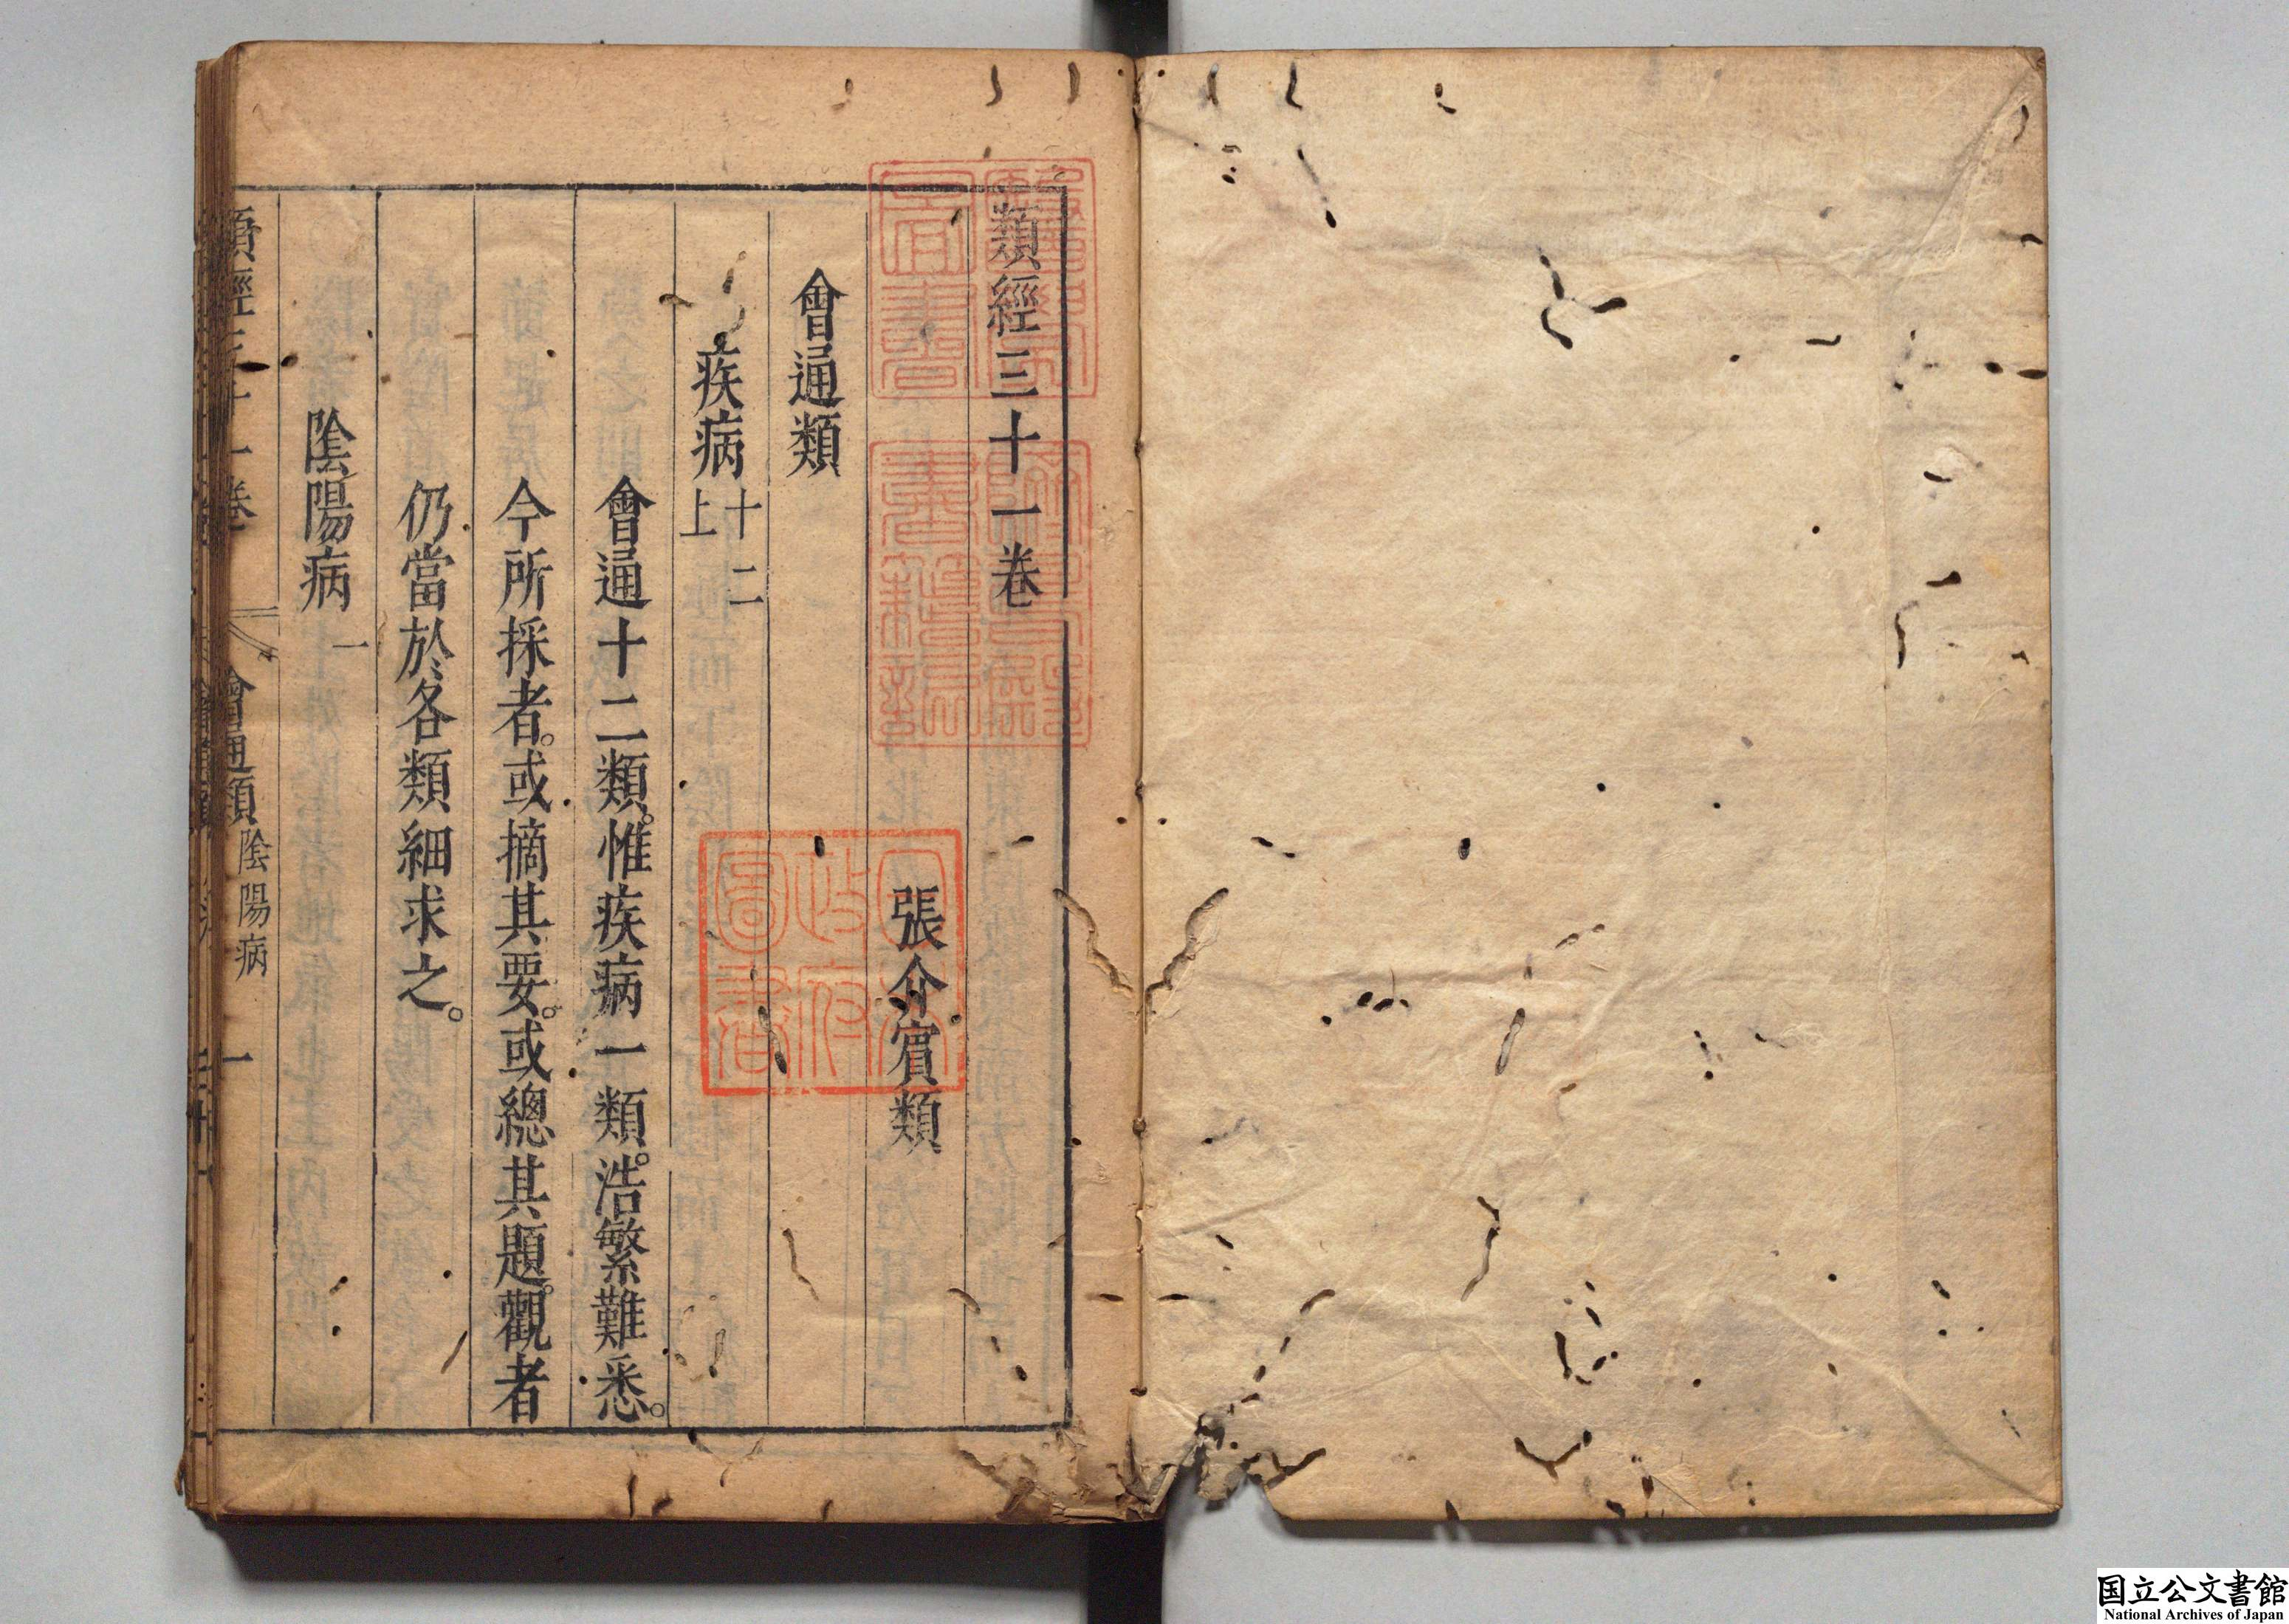 類經三十一卷
張介賓類
會通類
疾病十二上
會通十二類。惟疾病一類。浩繁難悉。
今所採者。或摘其要。或總其題。觀者
仍當於各類細求之。
陰陽病一
類經三十一卷 會通類 陰陽病 一
日本政府圖書
国立公文書館
National Archives of Japan